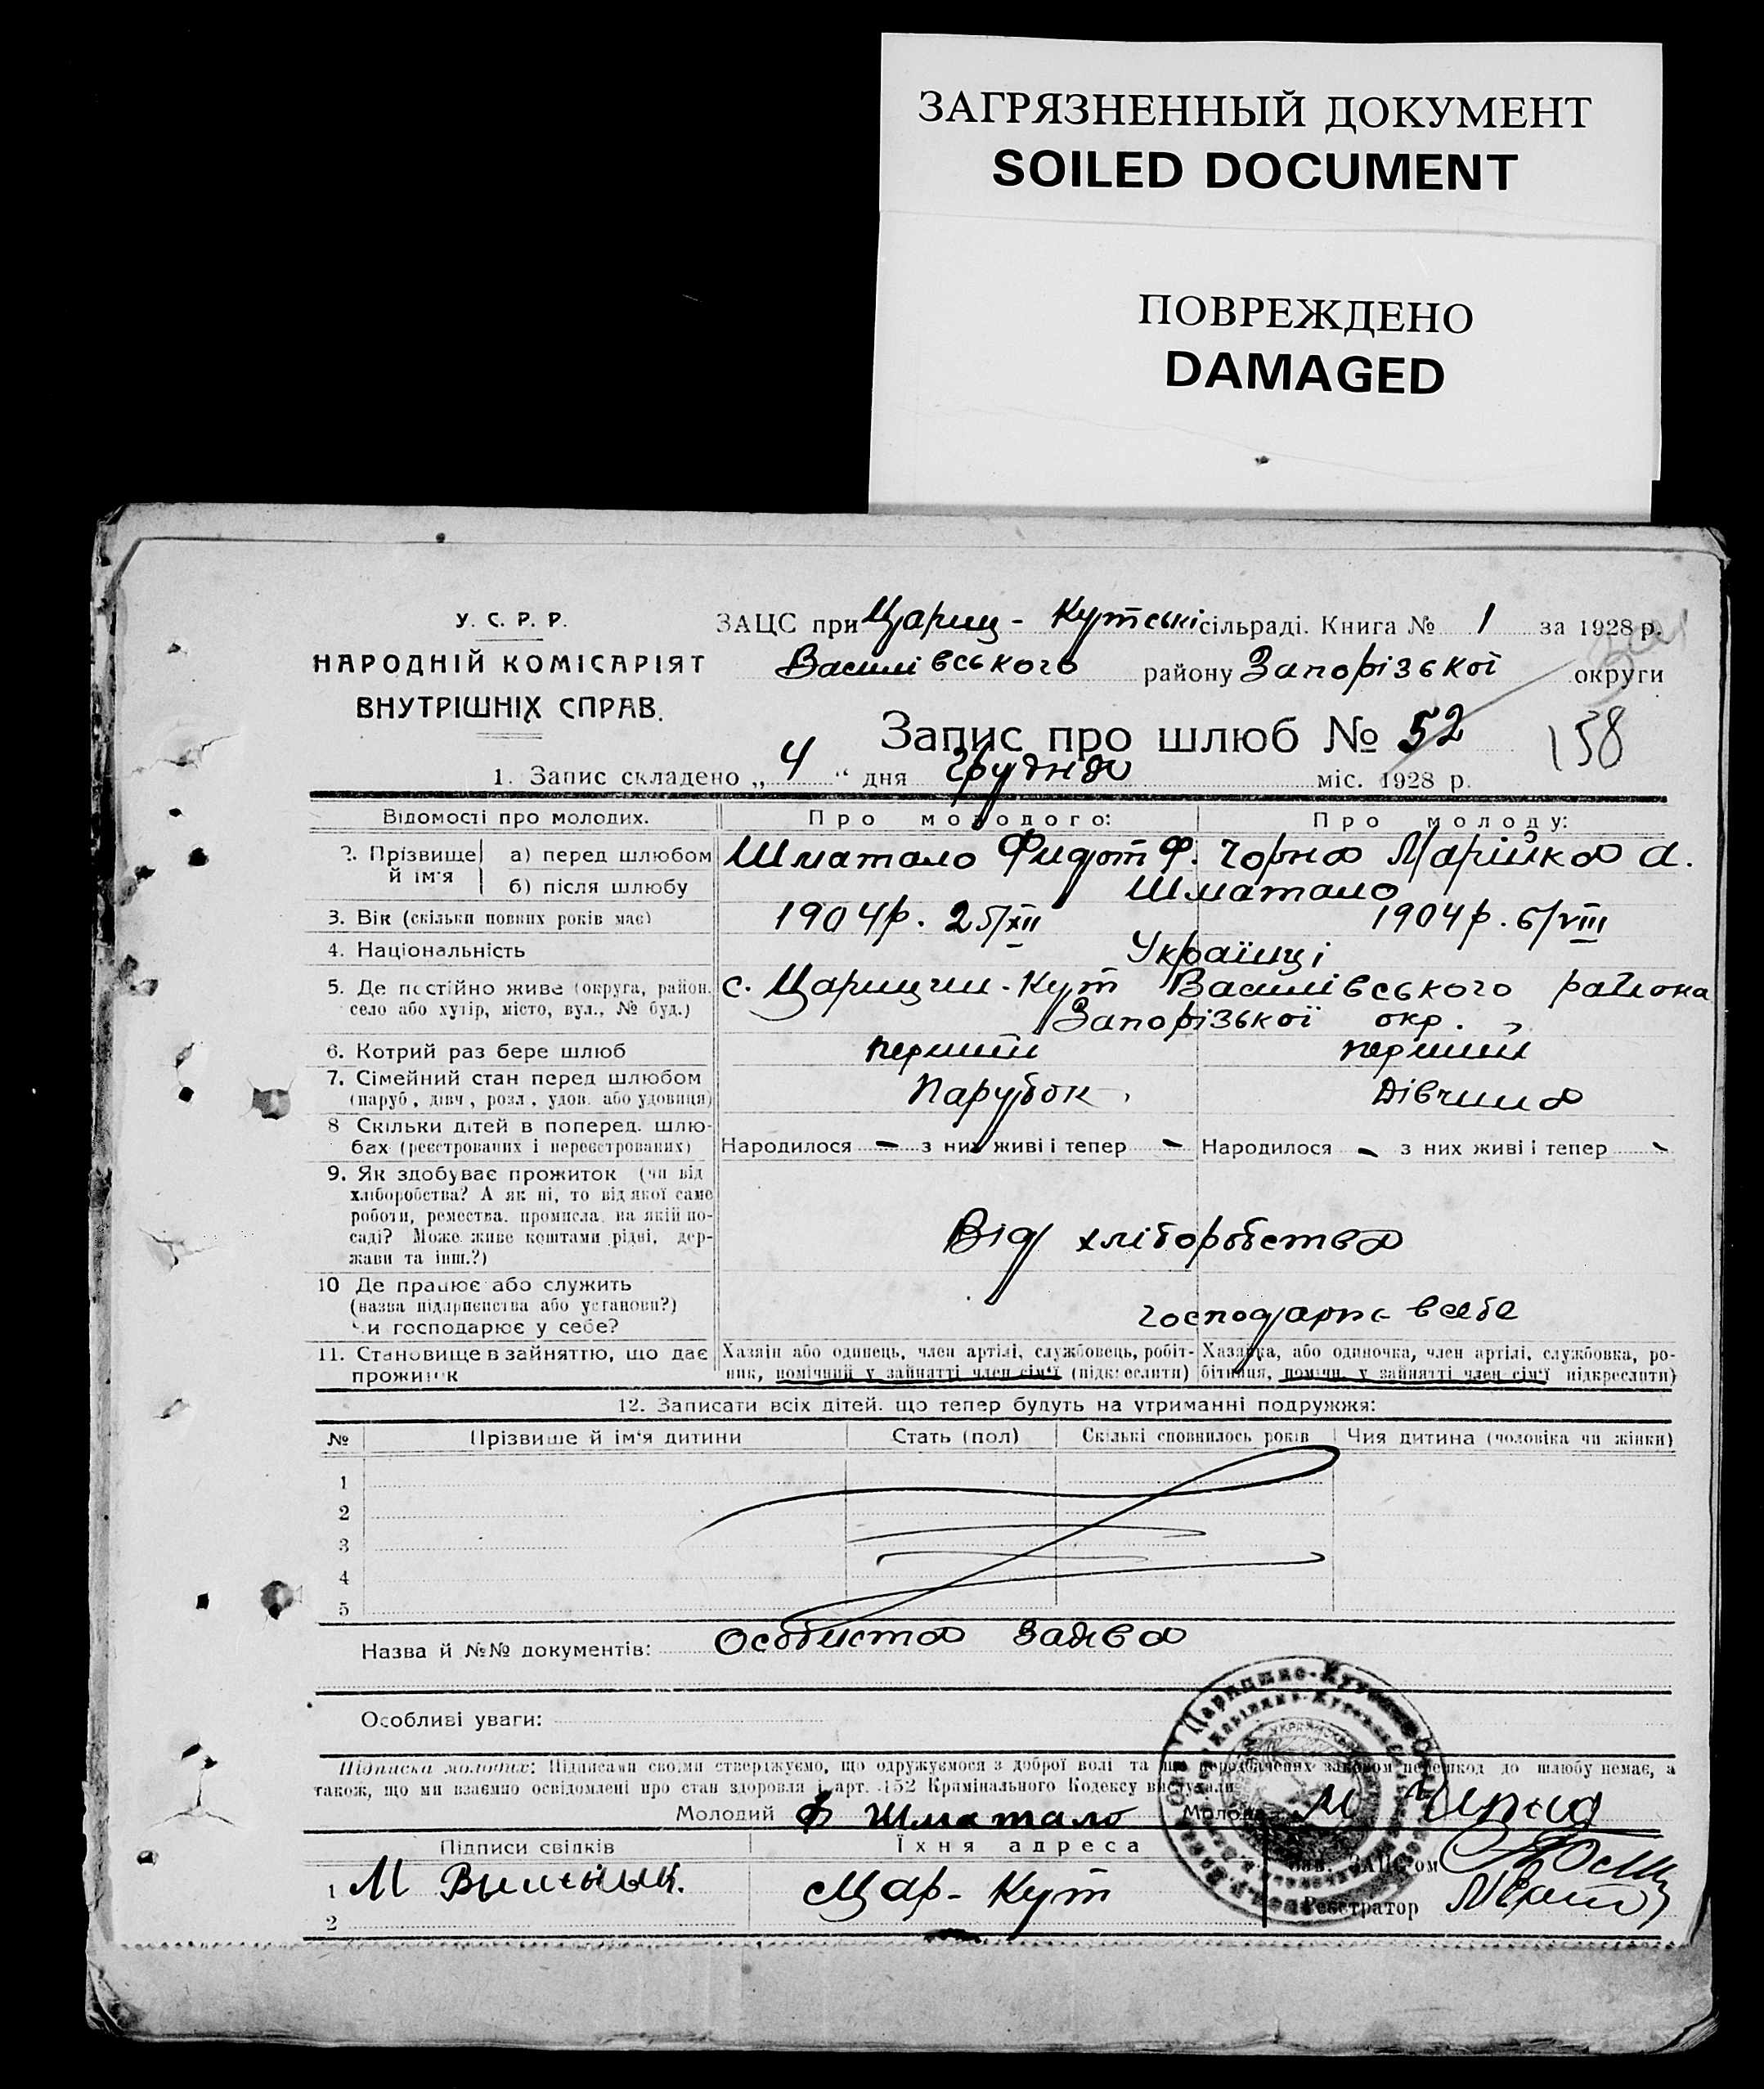 ЗАГРЯЗНЕННЫЙ ДОКУМЕНТ
SOILED DOCUMENT
ПОВРЕЖДЕНО
DAMAGED
У. С. Р. Р.
НАРОДНІЙ КОМІСАРІЯТ
ВНУТРІШНІХ СПРАВ.
ЗАЦС при Цариц - Кутські сільраді. Книга № 1 за 1928 р.
Василівського району Запорізької округи
Запис про шлюб № 52
138
1. Запис складено „ 4 “ дня грудня міс. 1928 р.
Відомості про молодих. Про молодого: Про молоду:
2. Прізвище й ім'я
а) перед шлюбом Шматало Фидот Ф. Чорна Марійка А.
б) після шлюбу Шматало
3. Вік (скільки повних років має) 1904р. 25/XII 1904р. 6/VIII
4. Національність Українці
5. Де постійно живе (округа, район, с. Царицин-Кут Василівського района
село або хутір, місто, вул., № буд.) Запорізької окр.
6. Котрий раз бере шлюб перший перший
7. Сімейний стан перед шлюбом Парубок Дівчина
(паруб., дівч., розл., удов. або удовиця)
8 Скільки дітей в поперед. шлю-
бах (реєстрованих і нереєстрованих) Народилося - з них живі і тепер - Народилося - з них живі і тепер -
9. Як здобуває прожиток (чи від
хліборобства? А як ні, то від якої саме
роботи, ремества, промисла, на якій по-
саді? Може живе коштами рідні, дер- Від хліборобства
жави та інш.?)
10 Де працює або служить
(назва підприємства або установи?) господарює в себе
Чи господарює у себе?
11. Становище в зайняттю, що дає Хазяїн або одинець, член артілі, службовець, робіт- Хазяйка, або одиночка, член артілі, службовка, ро-
прожиток ник, помічний у зайнятті член сім'ї (підкреслити) бітниця, помічн. у зайнятті член сім'ї підкреслити)
12. Записати всіх дітей, що тепер будуть на утриманні подружжя:
№ Прізвище й ім'я дитини Стать (пол) Скількі сповнилось років Чия дитина (чоловіка чи жінки)
1
2
3
4
5
Назва й №№ документів: Особиста заява
Особливі уваги:
Підписка молодих: Підписами своїми стверджуємо, що одружуємося з доброї волі та що передбачених законом перешкод до шлюбу немає, а
також, що ми взаємно освідомлені про стан здоровля і арт. 152 Кримінального Кодексу вислухали
Молодий Ф Шматало Молода М Чорна
Підписи свідків Їхня адреса
Зав. ЗАЦС'ом
1 М Цар- Кут
Реєстратор
2